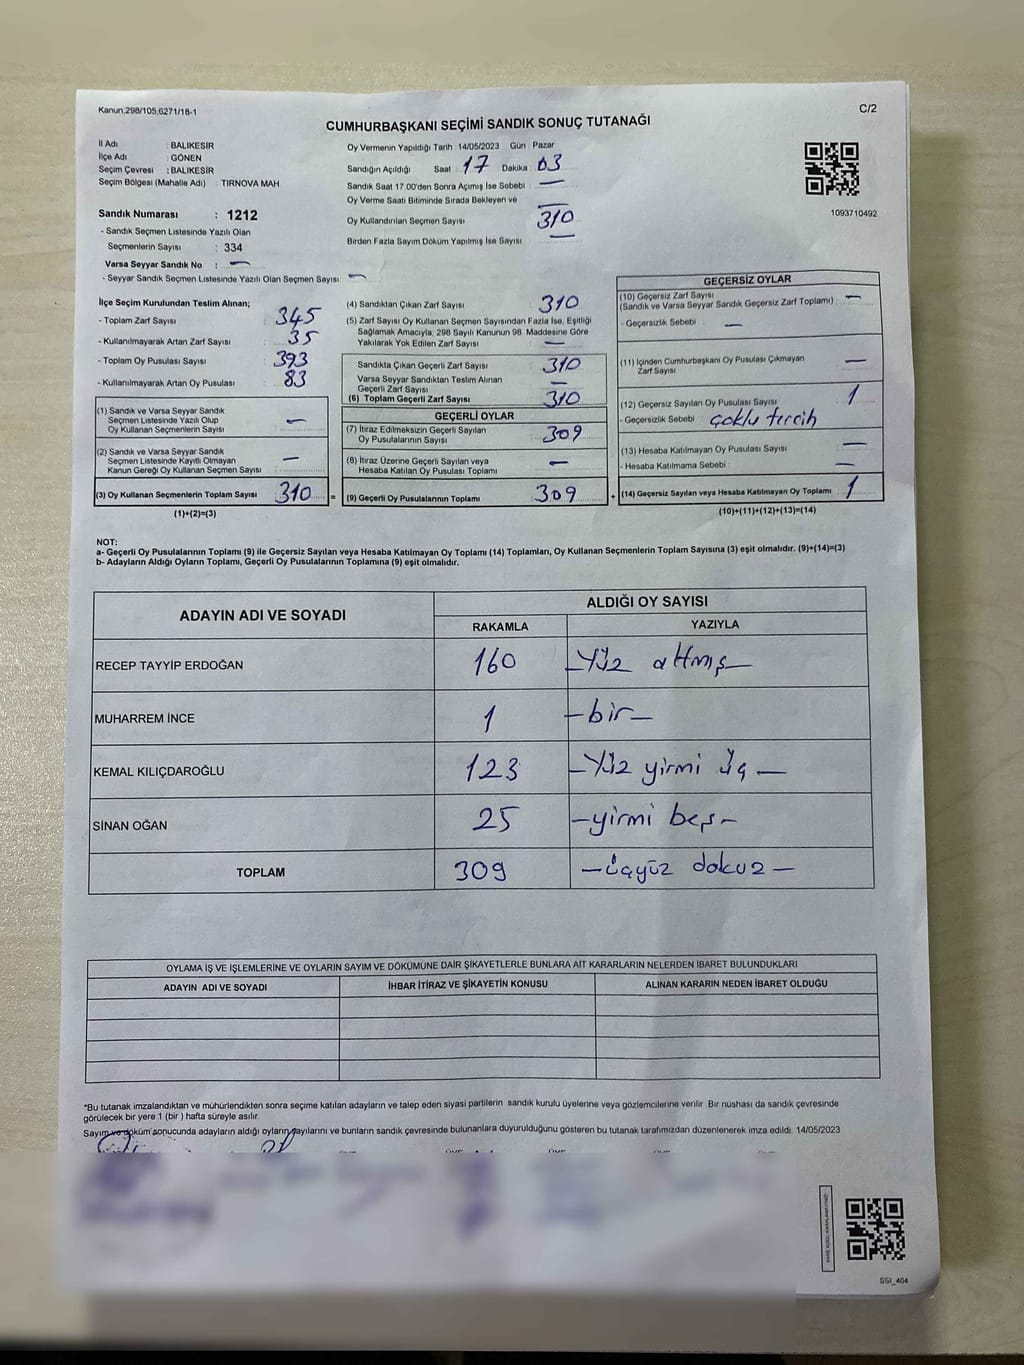 Kanun:298/105,6271/18-1
C/2
CUMHURBAŞKANI SEÇİMİ SANDIK SONUÇ TUTANAĞI
İl Adı : BALIKESİR
İlçe Adı : GÖNEN
Seçim Çevresi : BALIKESİR
Seçim Bölgesi (Mahalle Adı) : TIRNOVA MAH
Sandık Numarası : 1212
- Sandık Seçmen Listesinde Yazılı Olan
Seçmenlerin Sayısı : 334
Varsa Seyyar Sandık No : —
- Seyyar Sandık Seçmen Listesinde Yazılı Olan Seçmen Sayısı : —
Oy Vermenin Yapıldığı Tarih : 14/05/2023 Gün : Pazar
Sandığın Açıldığı Saat : 17 Dakika : 03
Sandık Saat 17.00'den Sonra Açımış İse Sebebi : —
Oy Verme Saati Bitiminde Sırada Bekleyen ve —
Oy Kullandırılan Seçmen Sayısı 310
Birden Fazla Sayım Döküm Yapılmış İse Sayısı —
1093710492
İlçe Seçim Kurulundan Teslim Alınan;
- Toplam Zarf Sayısı : 345
- Kullanılmayarak Artan Zarf Sayısı : 35
- Toplam Oy Pusulası Sayısı : 393
- Kullanılmayarak Artan Oy Pusulası : 83
(1) Sandık ve Varsa Seyyar Sandık
Seçmen Listesinde Yazılı Olup
Oy Kullanan Seçmenlerin Sayısı : —
(2) Sandık ve Varsa Seyyar Sandık
Seçmen Listesinde Kayıtlı Olmayan
Kanun Gereği Oy Kullanan Seçmen Sayısı : —
(3) Oy Kullanan Seçmenlerin Toplam Sayısı : 310 =
(1)+(2)=(3)
(4) Sandıktan Çıkan Zarf Sayısı 310
(5) Zarf Sayısı Oy Kullanan Seçmen Sayısından Fazla İse, Eşitliği
Sağlamak Amacıyla; 298 Sayılı Kanunun 98. Maddesine Göre
Yakılarak Yok Edilen Zarf Sayısı : —
Sandıkta Çıkan Geçerli Zarf Sayısı : 310
Varsa Seyyar Sandıktan Teslim Alınan
Geçerli Zarf Sayısı : —
(6) Toplam Geçerli Zarf Sayısı : 310
GEÇERLİ OYLAR
(7) İtiraz Edilmeksizin Geçerli Sayılan
Oy Pusulalarının Sayısı 309
(8) İtiraz Üzerine Geçerli Sayılan veya
Hesaba Katılan Oy Pusulası Toplamı : —
(9) Geçerli Oy Pusulalarının Toplamı : 309 +
GEÇERSİZ OYLAR
(10) Geçersiz Zarf Sayısı
(Sandık ve Varsa Seyyar Sandık Geçersiz Zarf Toplamı) : —
- Geçersizlik Sebebi : —
(11) İçinden Cumhurbaşkanı Oy Pusulası Çıkmayan
Zarf Sayısı —
(12) Geçersiz Sayılan Oy Pusulası Sayısı : 1
- Geçersizlik Sebebi : çoklu tercih
(13) Hesaba Katılmayan Oy Pusulası Sayısı : —
- Hesaba Katılmama Sebebi : —
(14) Geçersiz Sayılan veya Hesaba Katılmayan Oy Toplamı : 1
(10)+(11)+(12)+(13)=(14)
NOT:
a- Geçerli Oy Pusulalarının Toplamı (9) ile Geçersiz Sayılan veya Hesaba Katılmayan Oy Toplamı (14) Toplamları, Oy Kullanan Seçmenlerin Toplam Sayısına (3) eşit olmalıdır. (9)+(14)=(3)
b- Adayların Aldığı Oyların Toplamı, Geçerli Oy Pusulalarının Toplamına (9) eşit olmalıdır.
ADAYIN ADI VE SOYADI
ALDIĞI OY SAYISI
RAKAMLA YAZIYLA
RECEP TAYYİP ERDOĞAN 160 —Yüz altmış—
MUHARREM İNCE 1 —bir—
KEMAL KILIÇDAROĞLU 123 —Yüz yirmi üç—
SİNAN OĞAN 25 —yirmi beş—
TOPLAM 309 —üçyüz dokuz—
OYLAMA İŞ VE İŞLEMLERİNE VE OYLARIN SAYIM VE DÖKÜMÜNE DAİR ŞİKAYETLERLE BUNLARA AİT KARARLARIN NELERDEN İBARET BULUNDUKLARI
ADAYIN ADI VE SOYADI İHBAR İTİRAZ VE ŞİKAYETİN KONUSU ALINAN KARARIN NEDEN İBARET OLDUĞU
*Bu tutanak imzalandıktan ve mühürlendikten sonra seçime katılan adayların ve talep eden siyasi partilerin sandık kurulu üyelerine veya gözlemcilerine verilir. Bir nüshası da sandık çevresinde
görülecek bir yere 1 (bir) hafta süreyle asılır.
Sayım ve döküm sonucunda adayların aldığı oyların sayılarını ve bunların sandık çevresinde bulunanlara duyurulduğunu gösteren bu tutanak tarafımızdan düzenlenerek imza edildi. 14/05/2023
SSI_404